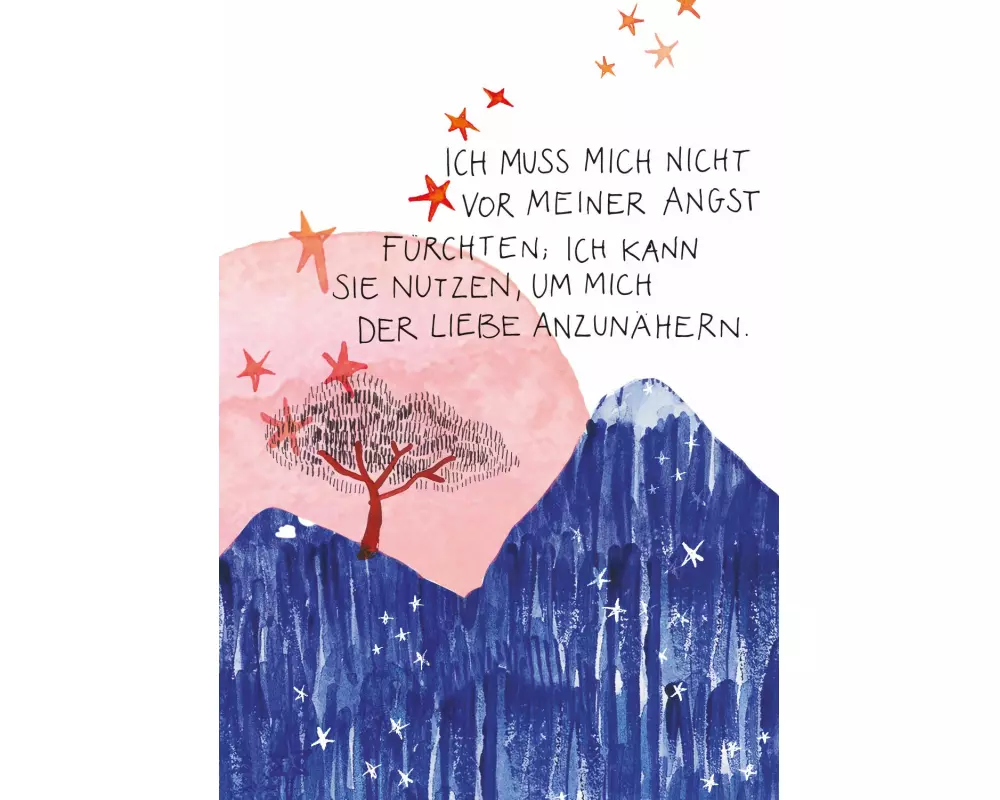 ICH MUSS MICH NICHT
VOR MEINER ANGST
FÜRCHTEN; ICH KANN
SIE NUTZEN, UM MICH
DER LIEBE ANZUNÄHERN.